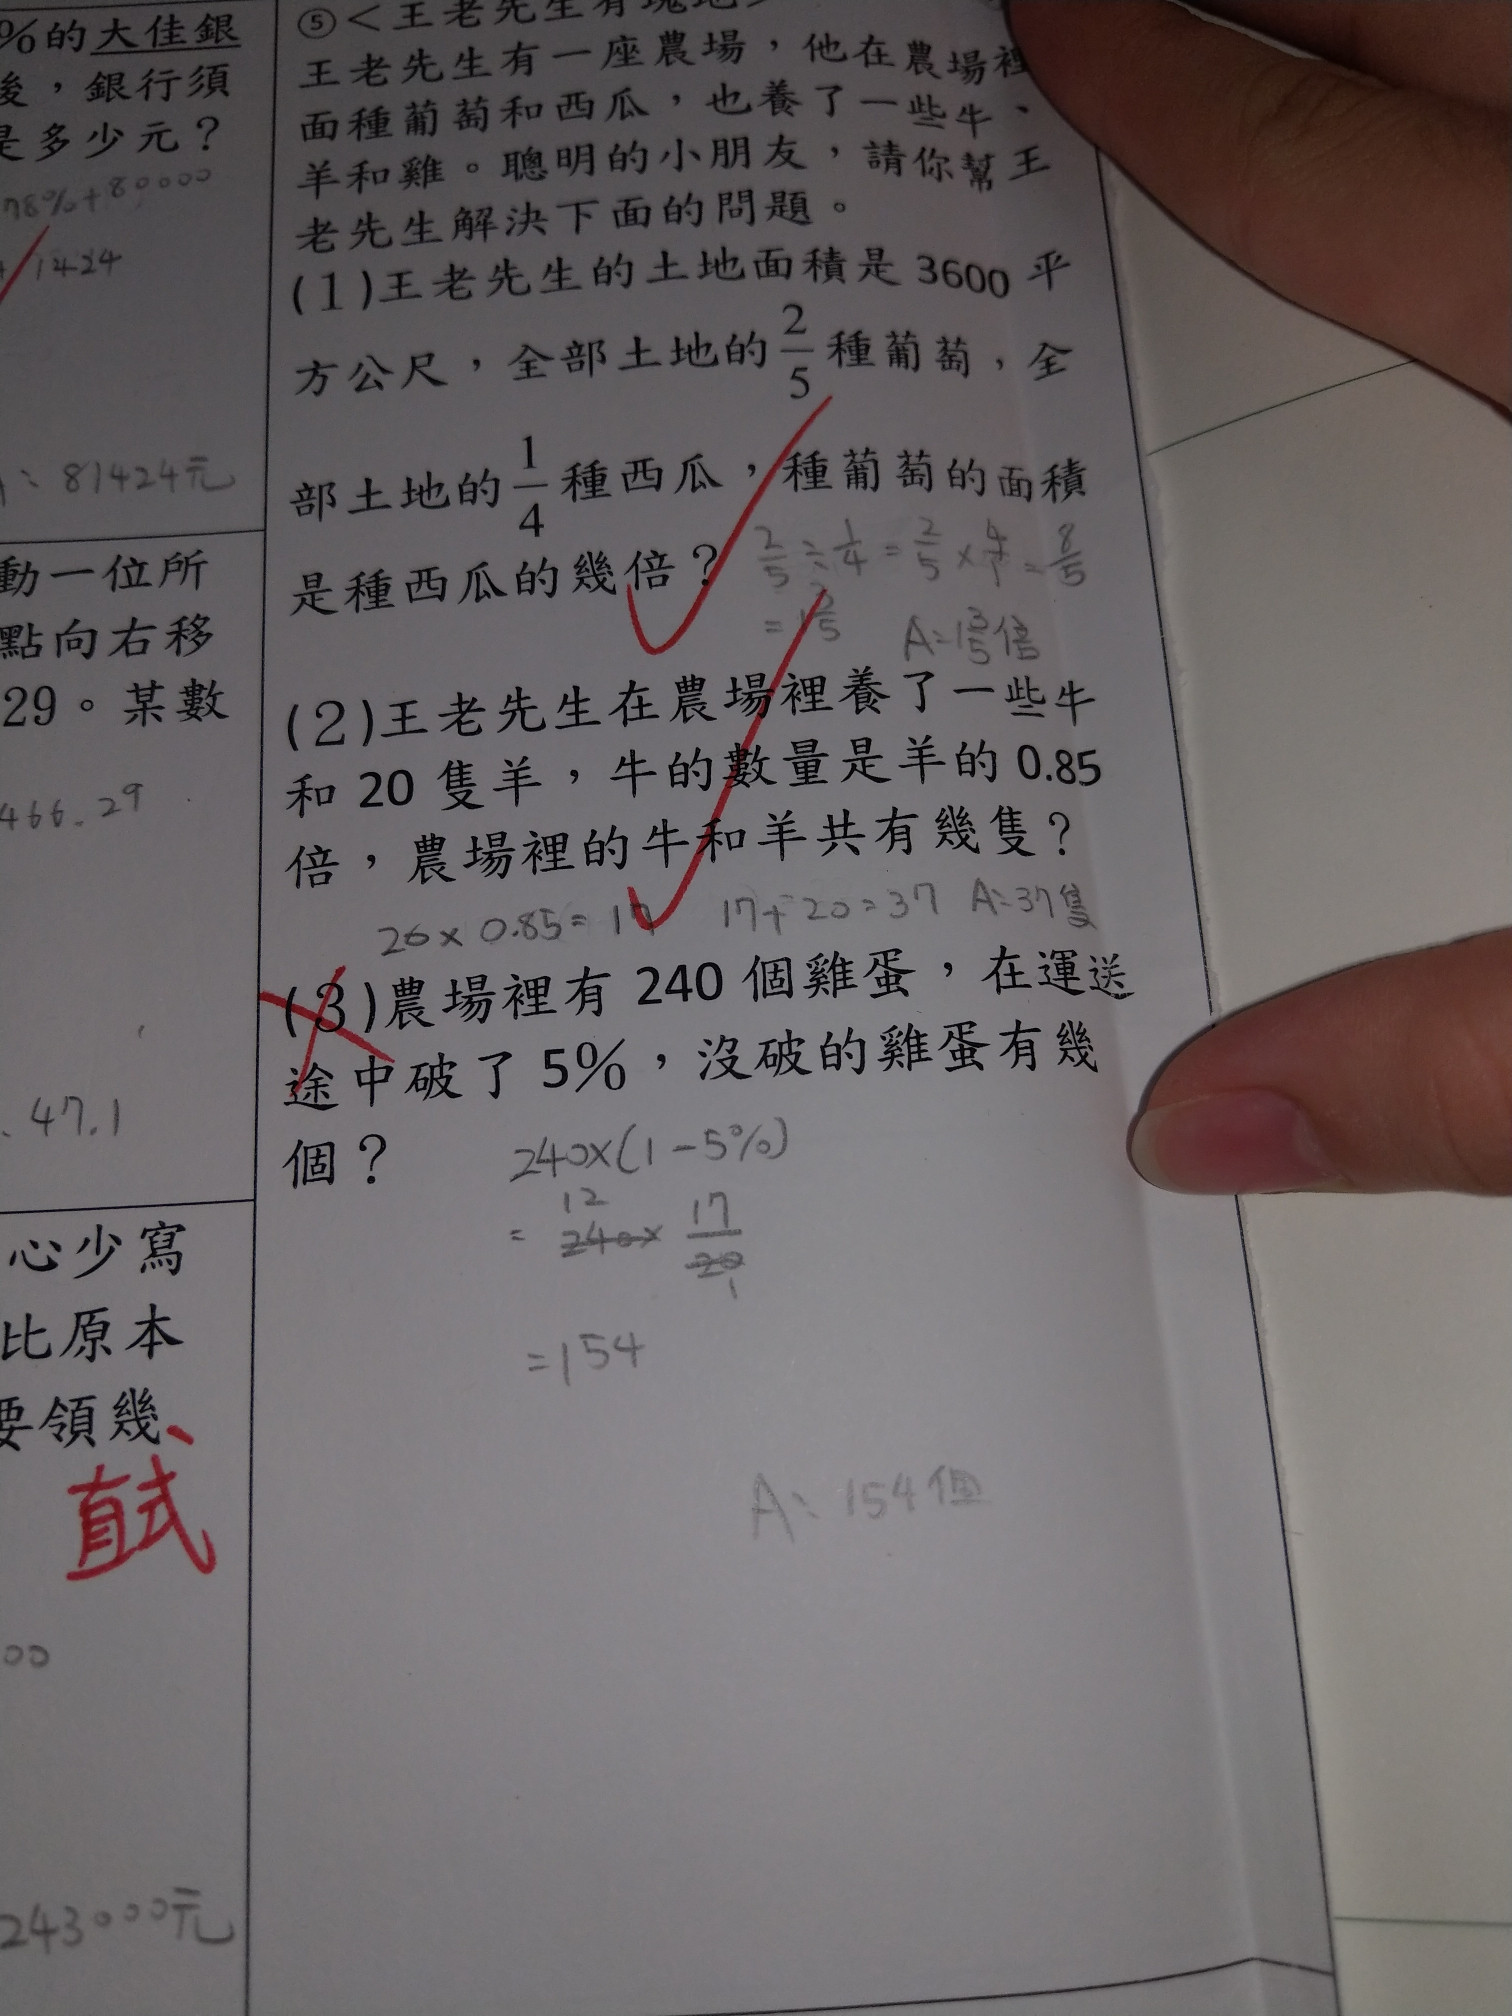 %的大佳銀
後，銀行須
是多少元？
78%+80000
1424
A：81424元
動一位所
點向右移
29。某數
466.29
47.1
心少寫
比原本
要領幾、
直式
00
243000元
⑤＜王老先生有塊地＞
王老先生有一座農場，他在農場裡
面種葡萄和西瓜，也養了一些牛、
羊和雞。聰明的小朋友，請你幫王
老先生解決下面的問題。
(1)王老先生的土地面積是 3600 平
方公尺，全部土地的 2/5 種葡萄，全
部土地的 1/4 種西瓜，種葡萄的面積
是種西瓜的幾倍？ 2/5 ÷ 1/4 = 2/5 × 4/1 = 8/5
= 1 3/5 A：1 3/5 倍
(2)王老先生在農場裡養了一些牛
和 20 隻羊，牛的數量是羊的 0.85
倍，農場裡的牛和羊共有幾隻？
20×0.85=17 17+20=37 A：37隻
(3)農場裡有 240 個雞蛋，在運送
途中破了 5%，沒破的雞蛋有幾
個？ 240×(1-5%)
12 17
= 240× 20
1
=154
A：154個